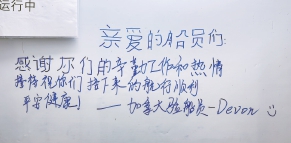 运行中
亲爱的船员们:
感谢你们的辛勤工作和热情
接待祝你们接下来的航行顺利
平安健康!——加拿大验船员-Devon